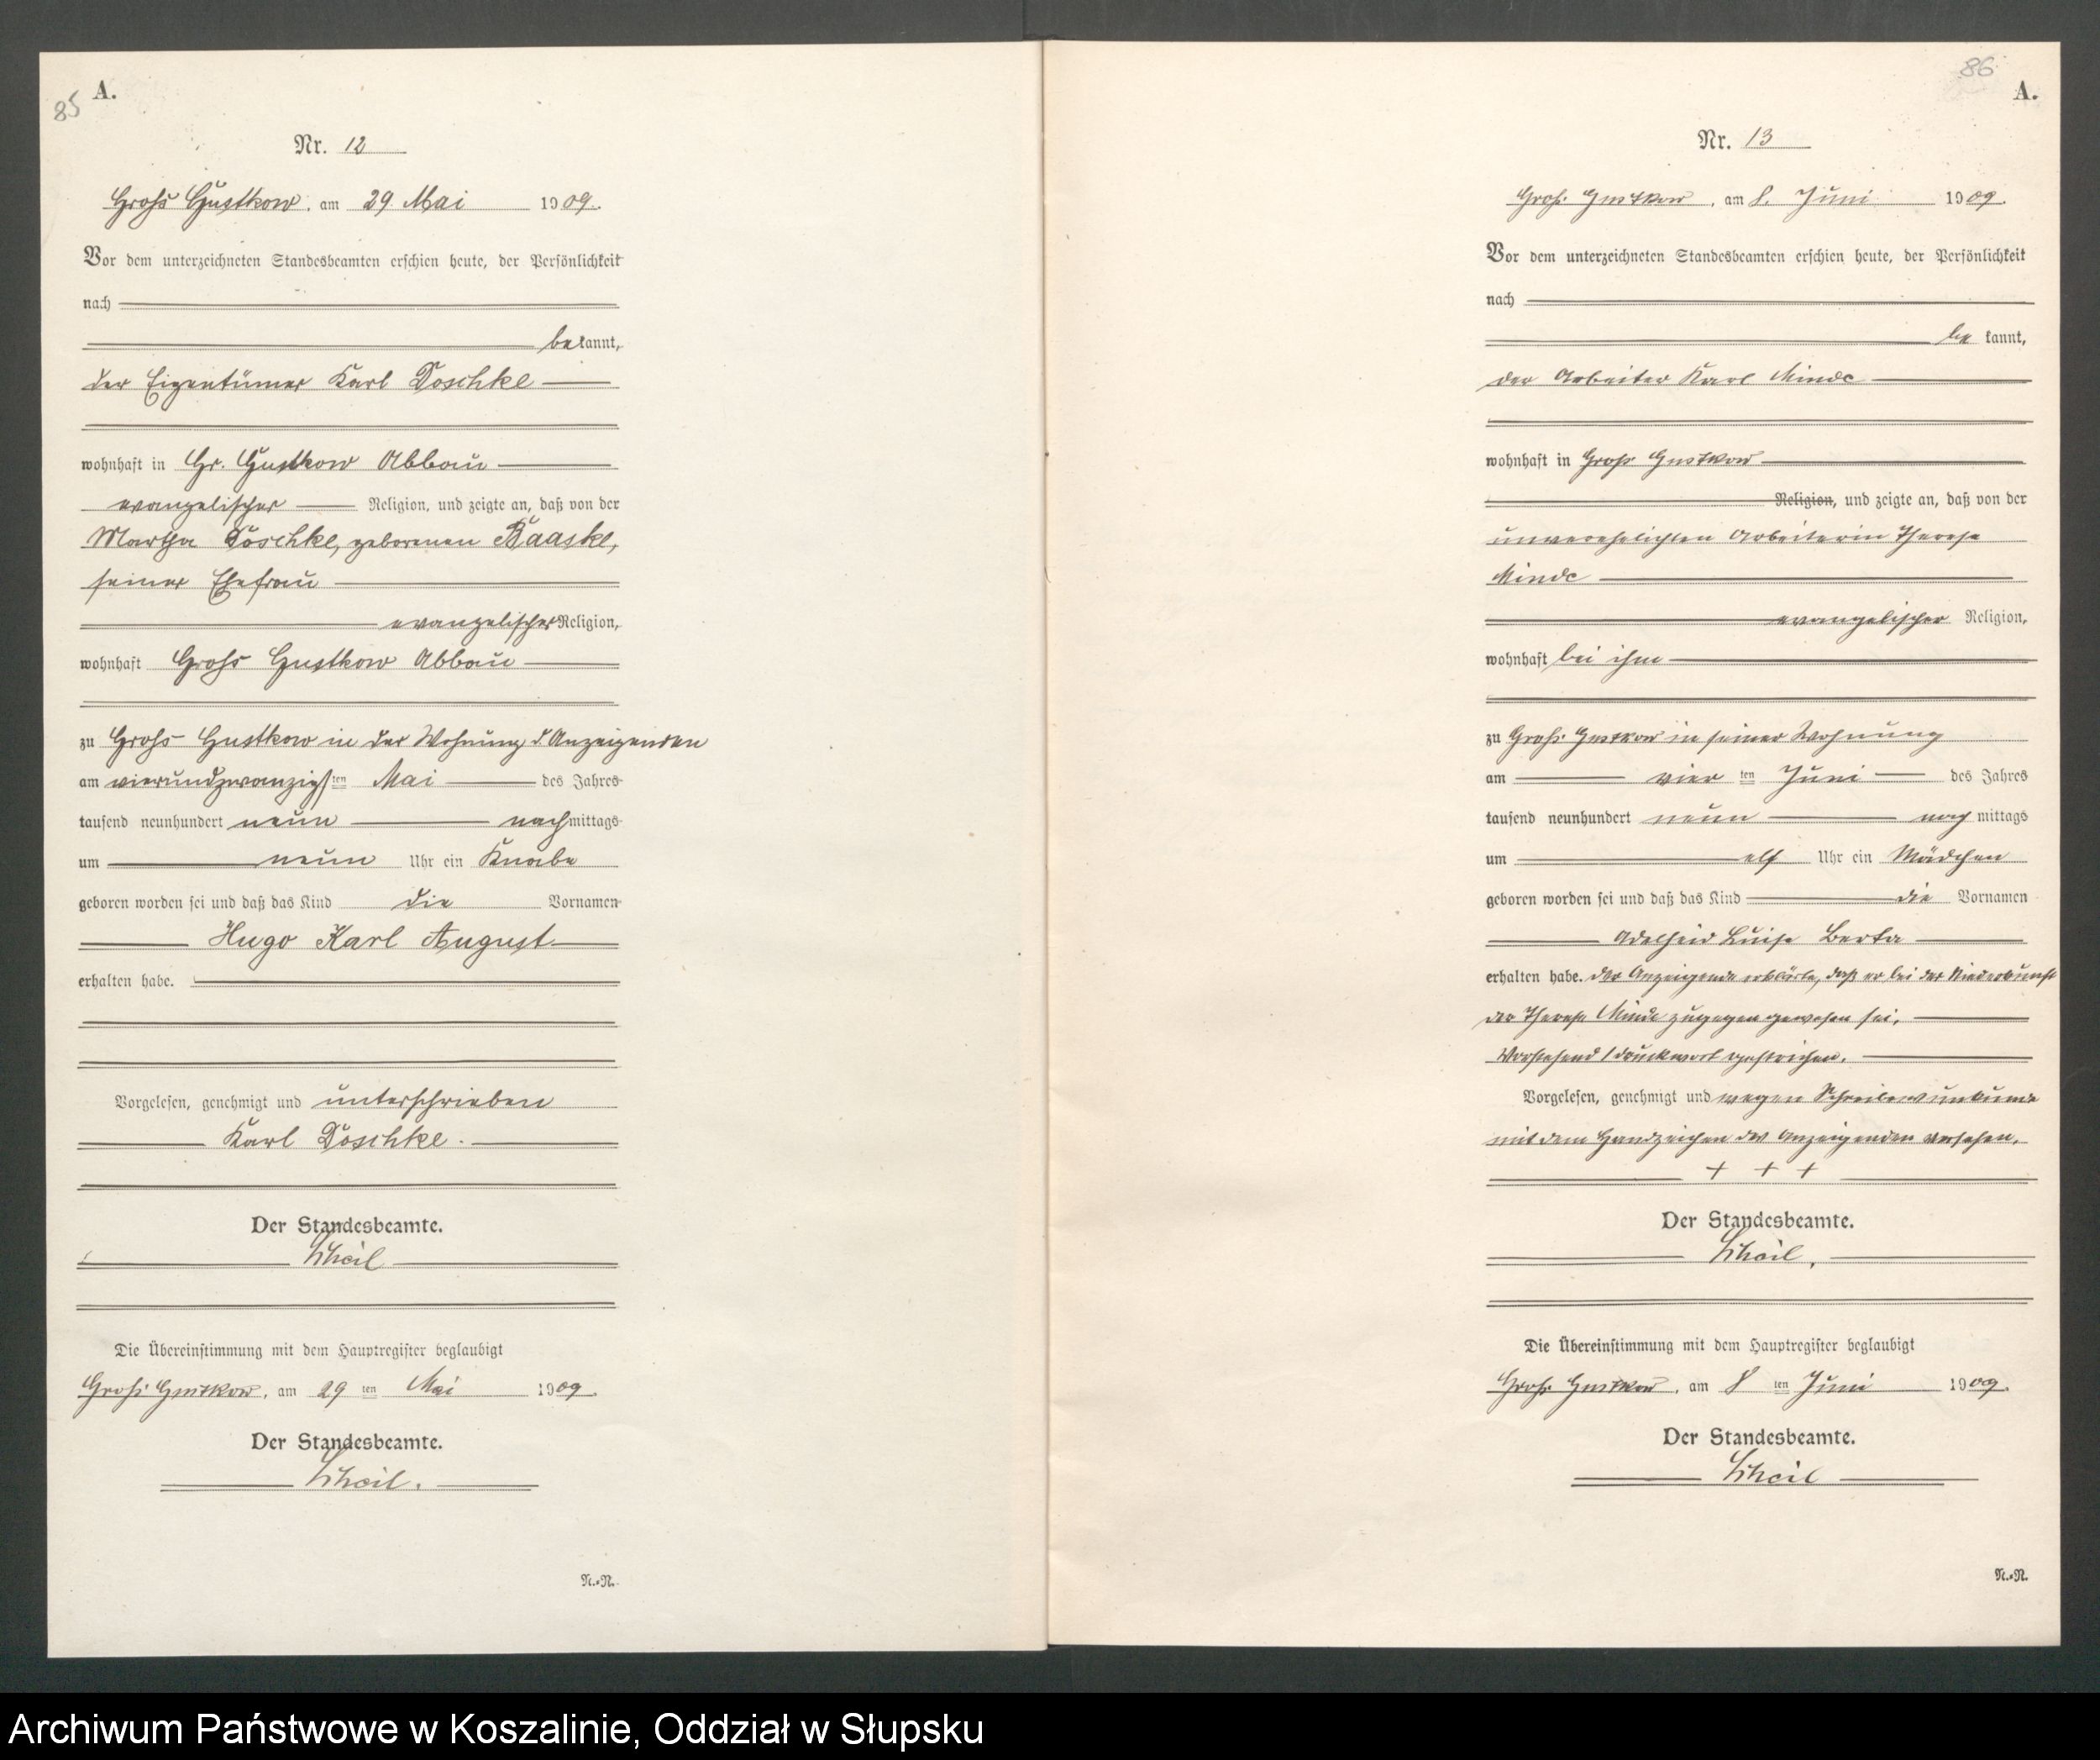 85
A.
Nr. 12
Groß Gustkow, am 29 Mai 1909.
Vor dem unterzeichneten Standesbeamten erschien heute, der Persönlichkeit
nach
bekannt,
der Eigentümer Karl Döschke
wohnhaft in Gr. Gustkow Abbau
evangelischer Religion, und zeigte an, daß von der
Martha Döschke, geborenen Raaske,
seiner Ehefrau
evangelischer Religion,
wohnhaft Groß Gustkow Abbau
zu Groß Gustkow in der Wohnung d Anzeigenden
am vierundzwanzigsten Mai des Jahres
tausend neunhundert neun nachmittags
um neun Uhr ein Knabe
geboren worden sei und daß das Kind die Vornamen
Hugo Karl August
erhalten habe.
Vorgelesen, genehmigt und unterschrieben
Karl Döschke.
Der Standesbeamte.
Die Übereinstimmung mit dem Hauptregister beglaubigt
Groß Gustkow, am 29 ten Mai 1909.
Der Standesbeamte.
N.-R.
86
A.
Nr. 13
Groß Gustkow, am 8. Juni 1909.
Vor dem unterzeichneten Standesbeamten erschien heute, der Persönlichkeit
nach
bekannt,
der Arbeiter Karl Minde
wohnhaft in Groß Gustkow
Religion, und zeigte an, daß von der
unverehelichten Arbeiterin Therese
Minde
evangelischer Religion,
wohnhaft bei ihm
zu Groß Gustkow in seiner Wohnung
am vier ten Juni des Jahres
tausend neunhundert neun nach mittags
um elf Uhr ein Mädchen
geboren worden sei und daß das Kind die Vornamen
Adelheid Luise Berta
erhalten habe. Der Anzeigende erklärte, daß er bei der Niederkunft
der Therese Minde zugegen gewesen sei.
Vorstehend 1 Druckwort gestrichen.
Vorgelesen, genehmigt und wegen Schreibensunkunde
mit dem Handzeichen des Anzeigenden versehen.
+ + +
Der Standesbeamte.
Die Übereinstimmung mit dem Hauptregister beglaubigt
Groß Gustkow, am 8 ten Juni 1909.
Der Standesbeamte.
N.-R.
Archiwum Państwowe w Koszalinie, Oddział w Słupsku